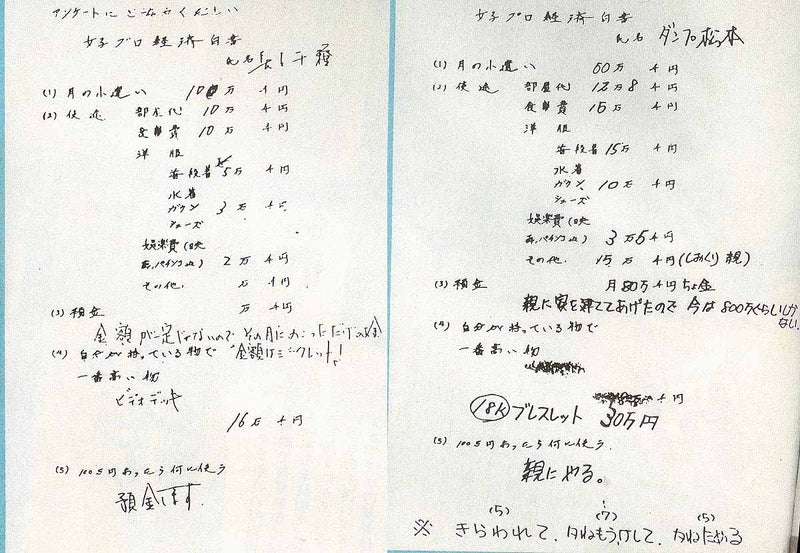 アンケートに
女子プロ経済白書
氏名 長与千種
(1) 月の小遣い 10万 千円
(2) 使途 部屋代 10万 千円
食事費 10万 千円
洋服
普段着 5万 千円
水着
ガウン 3万 千円
シューズ
娯楽費(映
画、パチンコetc) 2万 千円
その他. 万 千円
(3) 預金 万 千円
金額が一定じゃないので その月に
(4) 自分が持っている物で 金額はシークレット!
一番高い物
ビデオデッキ
16万 千円
(5) 100万円あったら何に使う
預金します。
女子プロ経済白書
氏名 ダンプ松本
(1) 月の小遣い 60万 千円
(2) 使途 部屋代 12万8千円
食事費 15万 千円
洋服
普段着 15万 千円
水着
ガウン 10万 千円
シューズ
娯楽費(映
画、パチンコetc) 3万5千円
その他. 15万 千円(しおくり 親)
(3) 預金 月80万千円ちょ金
親に家を建ててあげたので 今は800万ぐらいしか
ない。
(4) 自分が持っている物で
一番高い物
千円
18K ブレスレット 30万円
(5) 100万円あったら何に使う
親にやる。
(5) (7) (5)
※ きらわれて、かねもうけして、かねためる